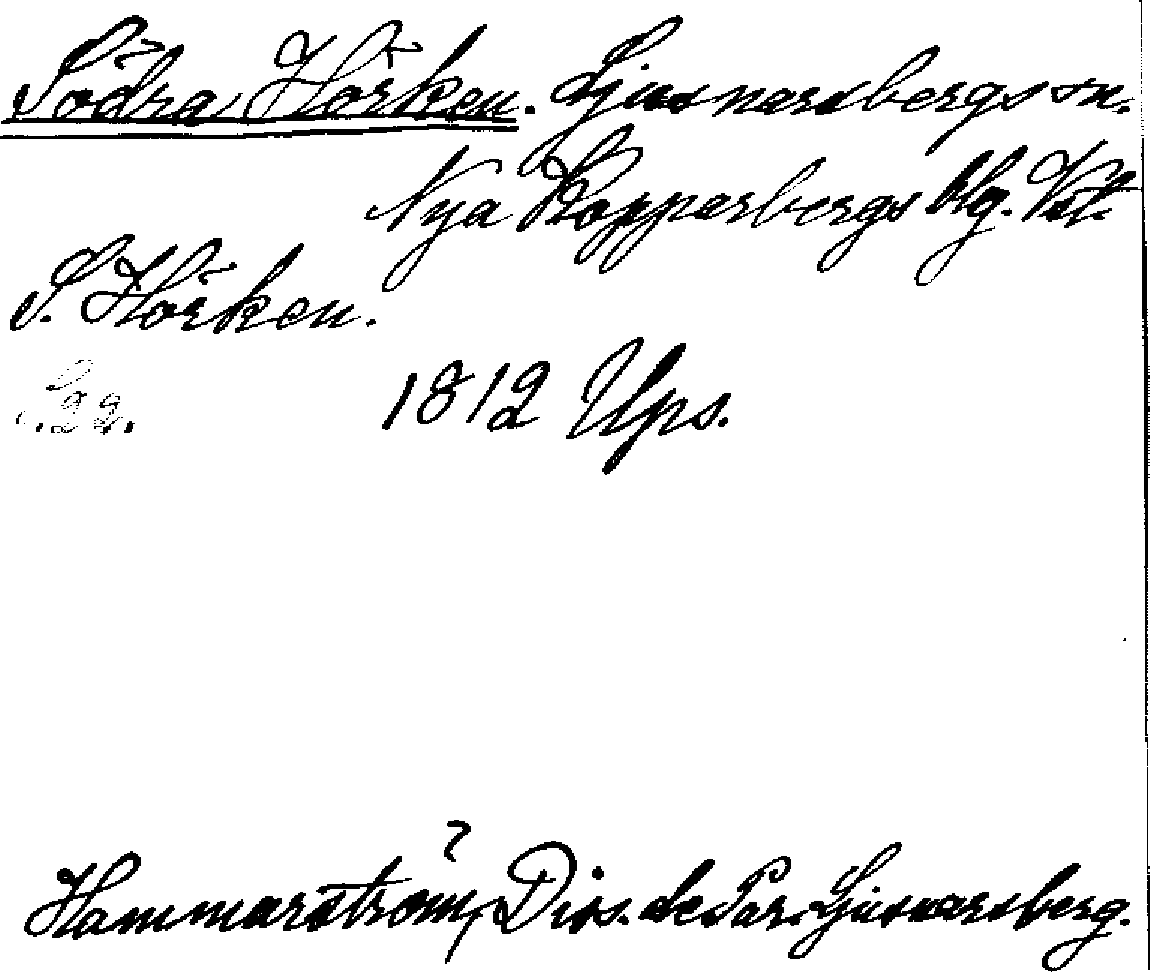 Södra Hörken. Ljusnarsbergs sn.
Nya Kopparbergs blg. Vstl.
S. Hörken.
S. 22. 1812 Ups.
Hammarström, Diss. de Par. Ljusnarsberg.